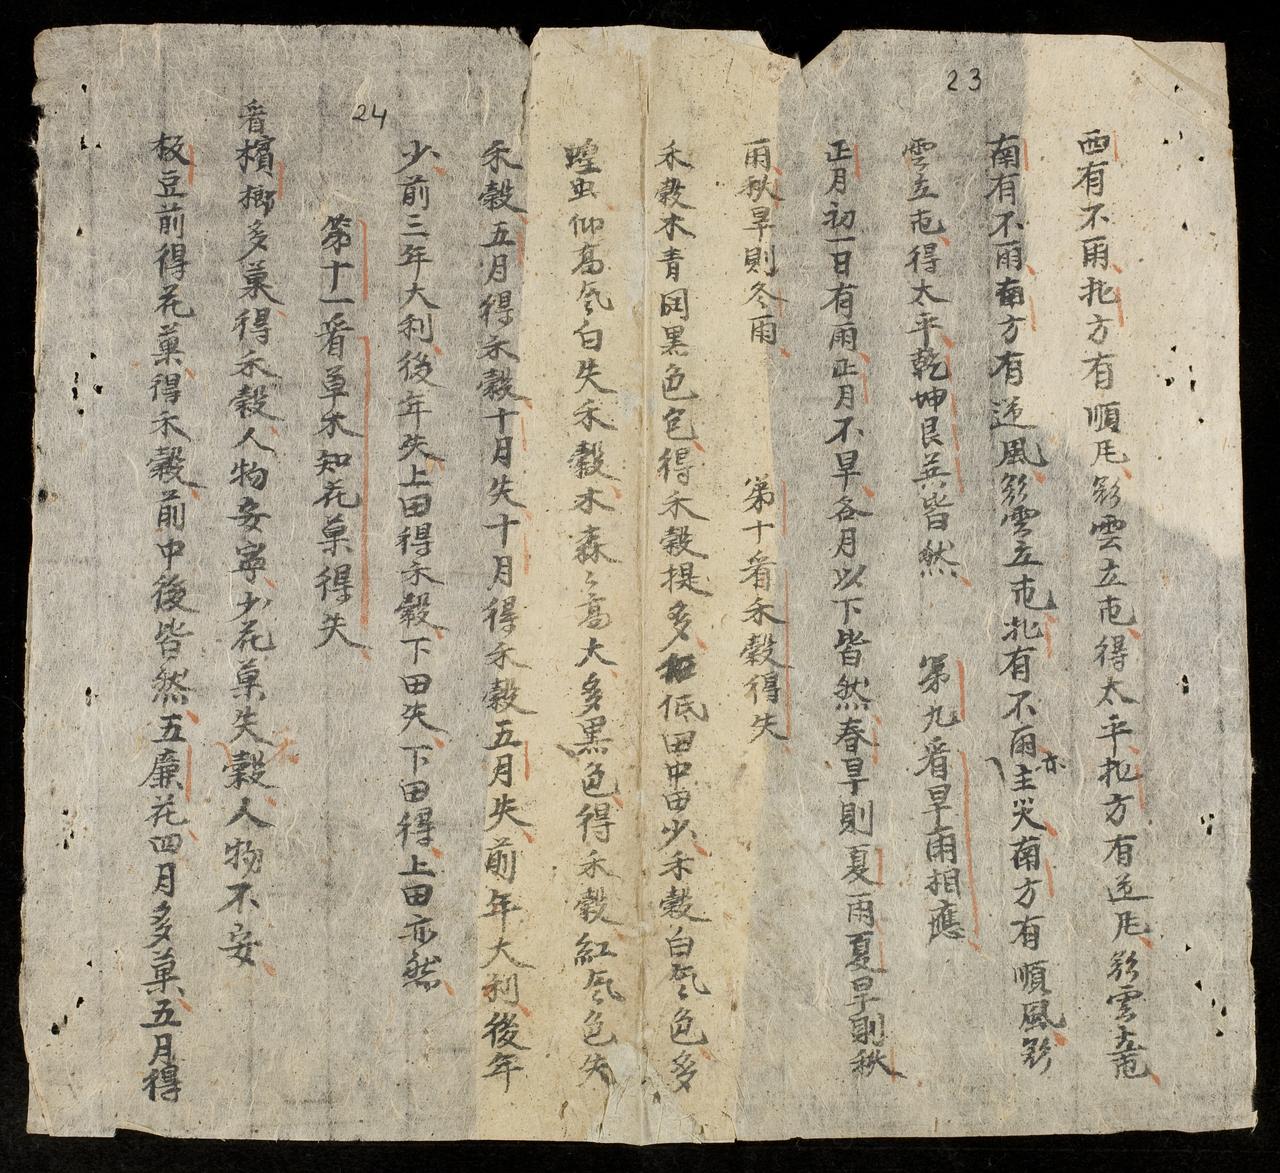 23
西有不雨北方有順風彩雲立屯得太平北方有逆風彩雲立屯
南有不雨南方有逆風彩雲立屯北有不雨亦主災南方有順風彩
雲立屯得太平乾坤艮巽皆然 第九看旱雨相應
正月初一日有雨正月不旱各月以下皆然春旱則夏雨夏旱則秋
雨秋旱則冬雨 第十看禾穀得失
禾穀木青润黑色得禾穀提多低田中田少禾穀白氣色多
蝗虫仰高氣白失禾穀木森〻高大多黑色得禾穀紅氣色失
禾穀五月得禾穀十月失十月得禾穀五月失前年大利後年
少前三年大利後年失上田得禾穀下田失下田得上田亦然
24
第十一看草木知花菓得失
看檳榔多菓得禾穀人物安寧少花菓失禾穀人物不安
板豆前得花菓得禾穀前中後皆然五廉花四月多菓五月得